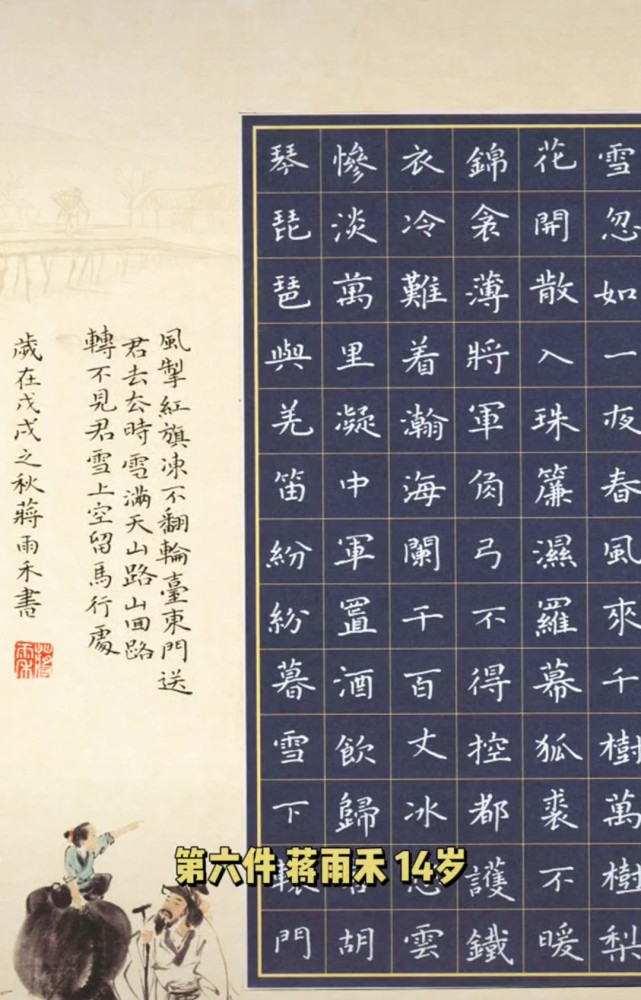 雪忽如一夜春風來千樹萬樹梨
花開散入珠簾濕羅幕狐裘不暖
錦衾薄將軍角弓不得控都護鐵
衣冷難着瀚海闌干百丈冰雲
慘淡萬里凝中軍置酒飲歸胡
琴琵琶與羌笛紛紛暮雪下轅門
風掣紅旗凍不翻輪臺東門送
君去去時雪滿天山路山回路
轉不見君雪上空留馬行處
歲在戊戌之秋蔣雨禾書
第六件 蒋雨禾 14岁